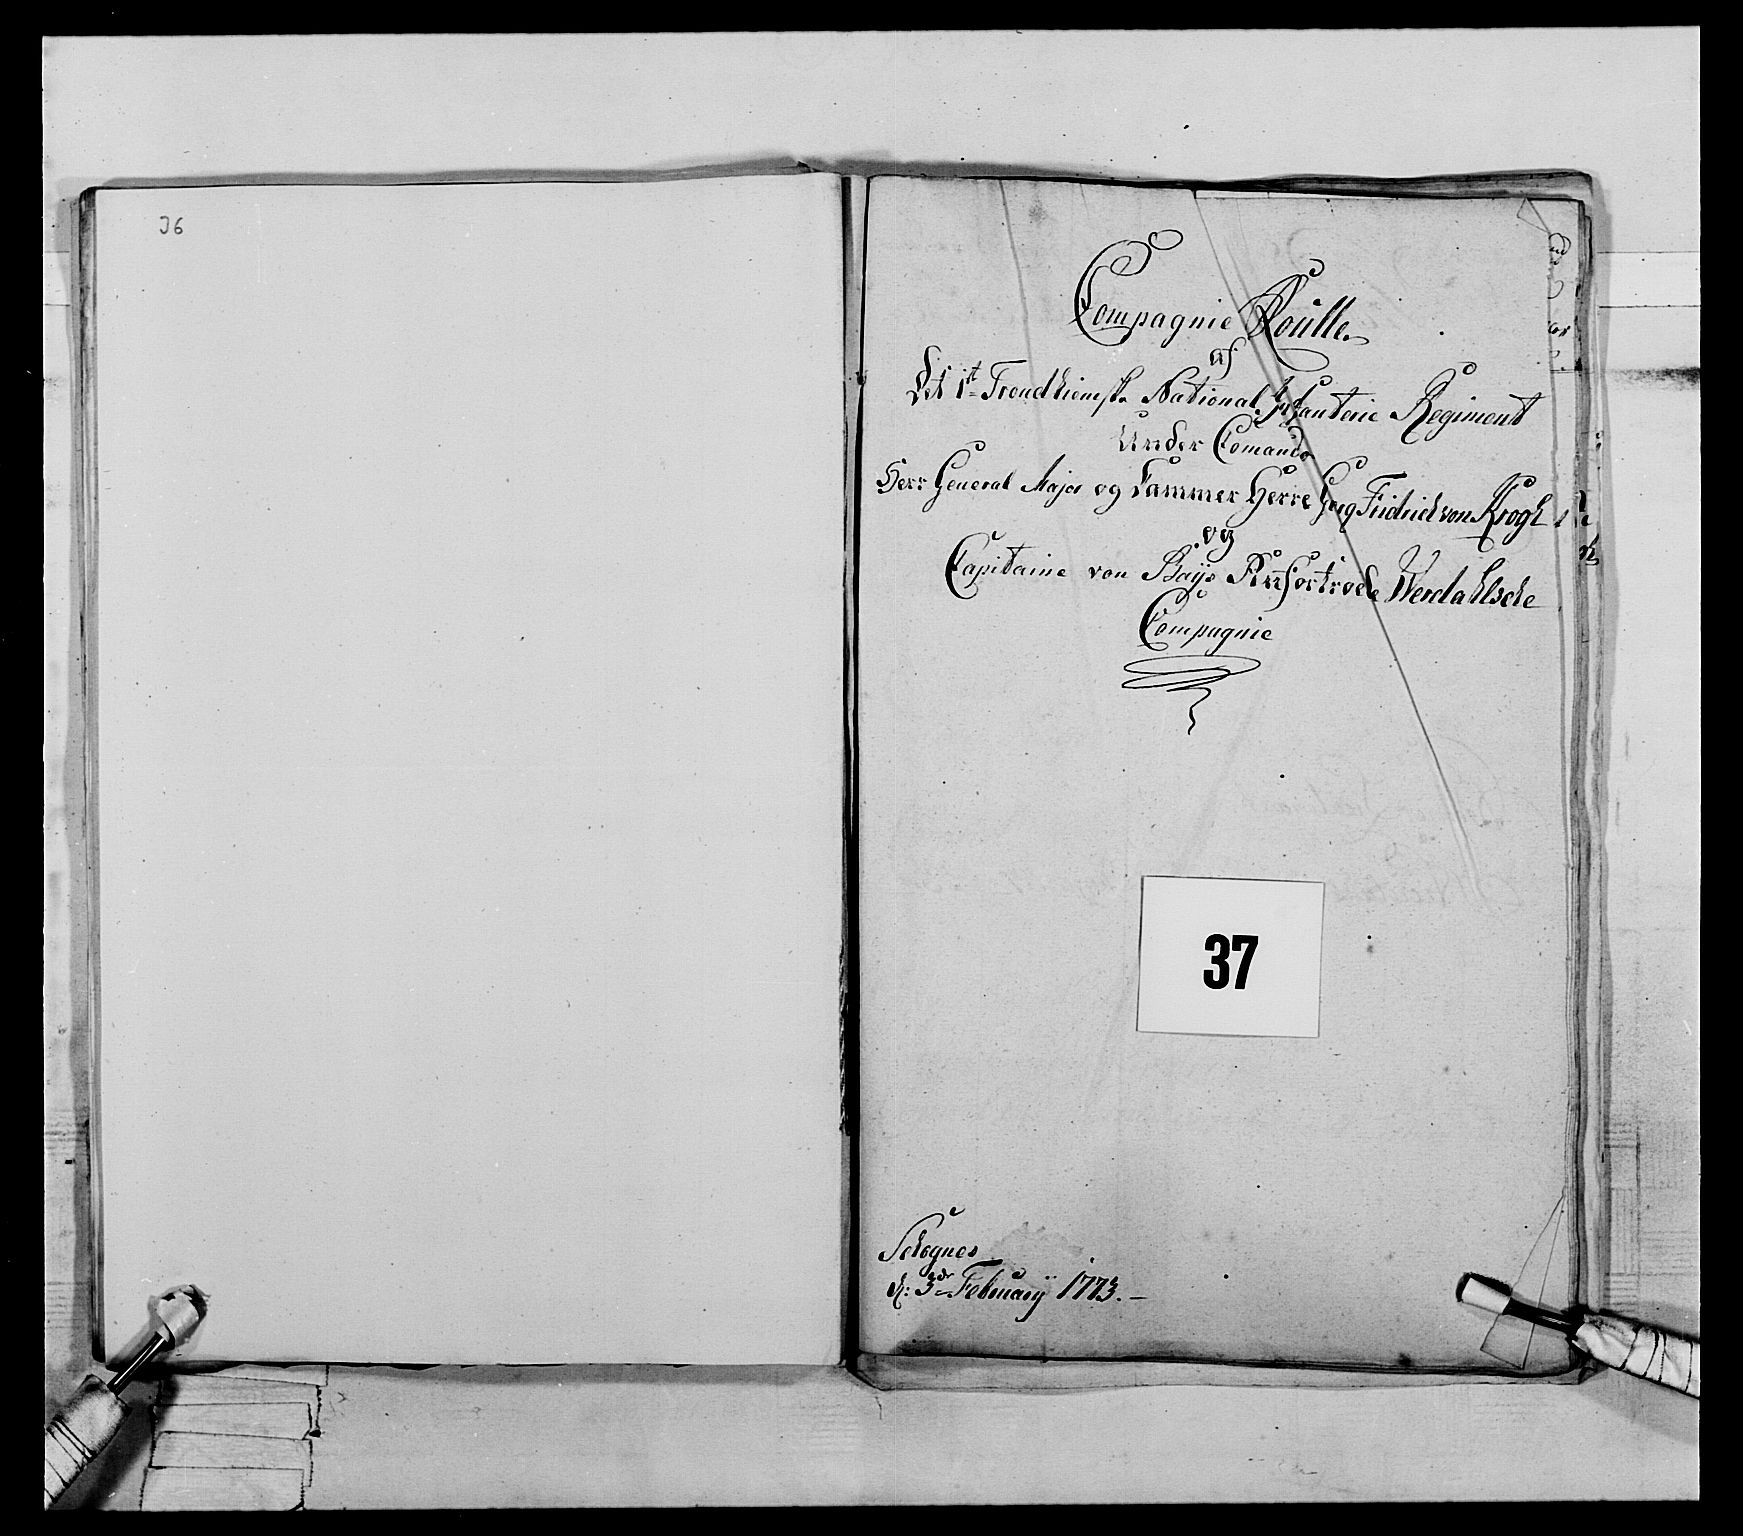 36
Compagnie Roulle
af
Det 1st Trondhiemske National Infanterie Regiment
Under Comando
Herr General Major og Cammer Herre Georg Fridrich von Krogh
og
Capitaine von Bays Anfortroede Werdahlsche
Compagnie
37
Schognes
d: 3de Februarÿ 1773.